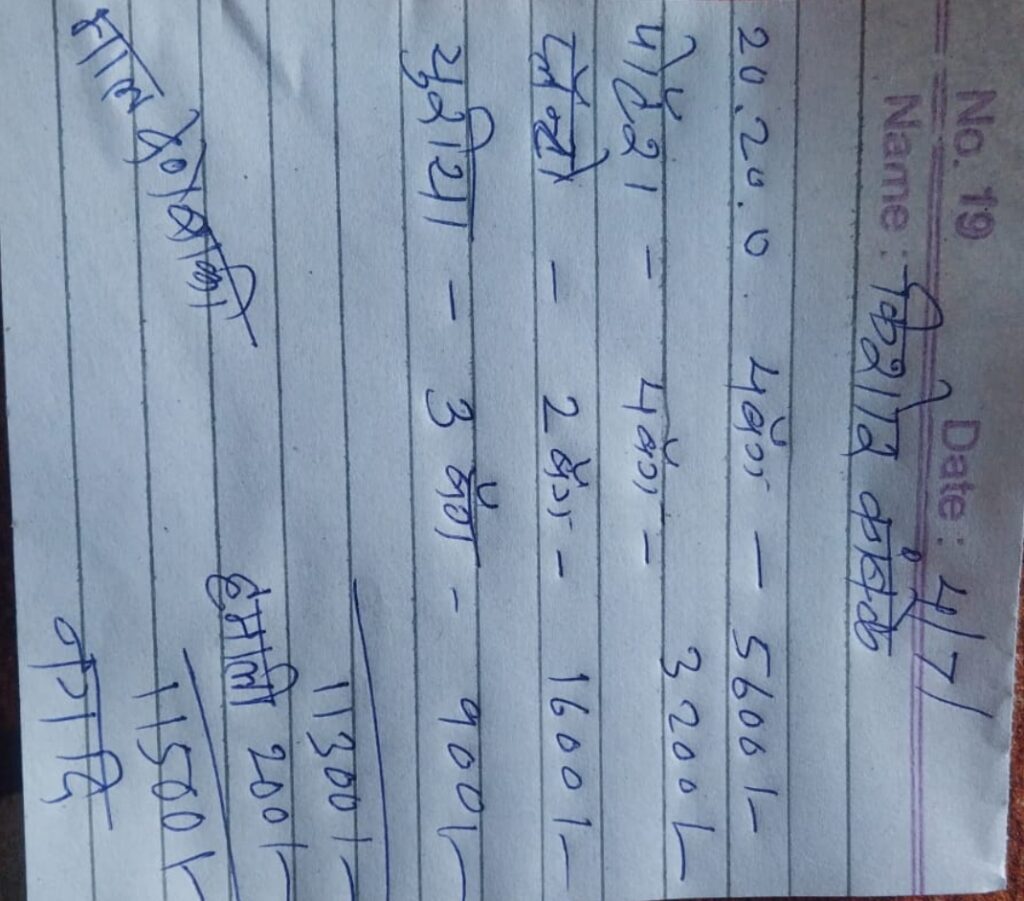 No. 19 Date: 4/7/
Name: किशोर कंधळे
20.20.0 ४ बॅग - 5600/-
पोटॅश - ४ बॅग - 3200/-
- 2 बॅग - 1600/-
युरिया - 3 बॅग - 900/-
11300/-
हमाली 200/-
11500/-
माल
बाकि